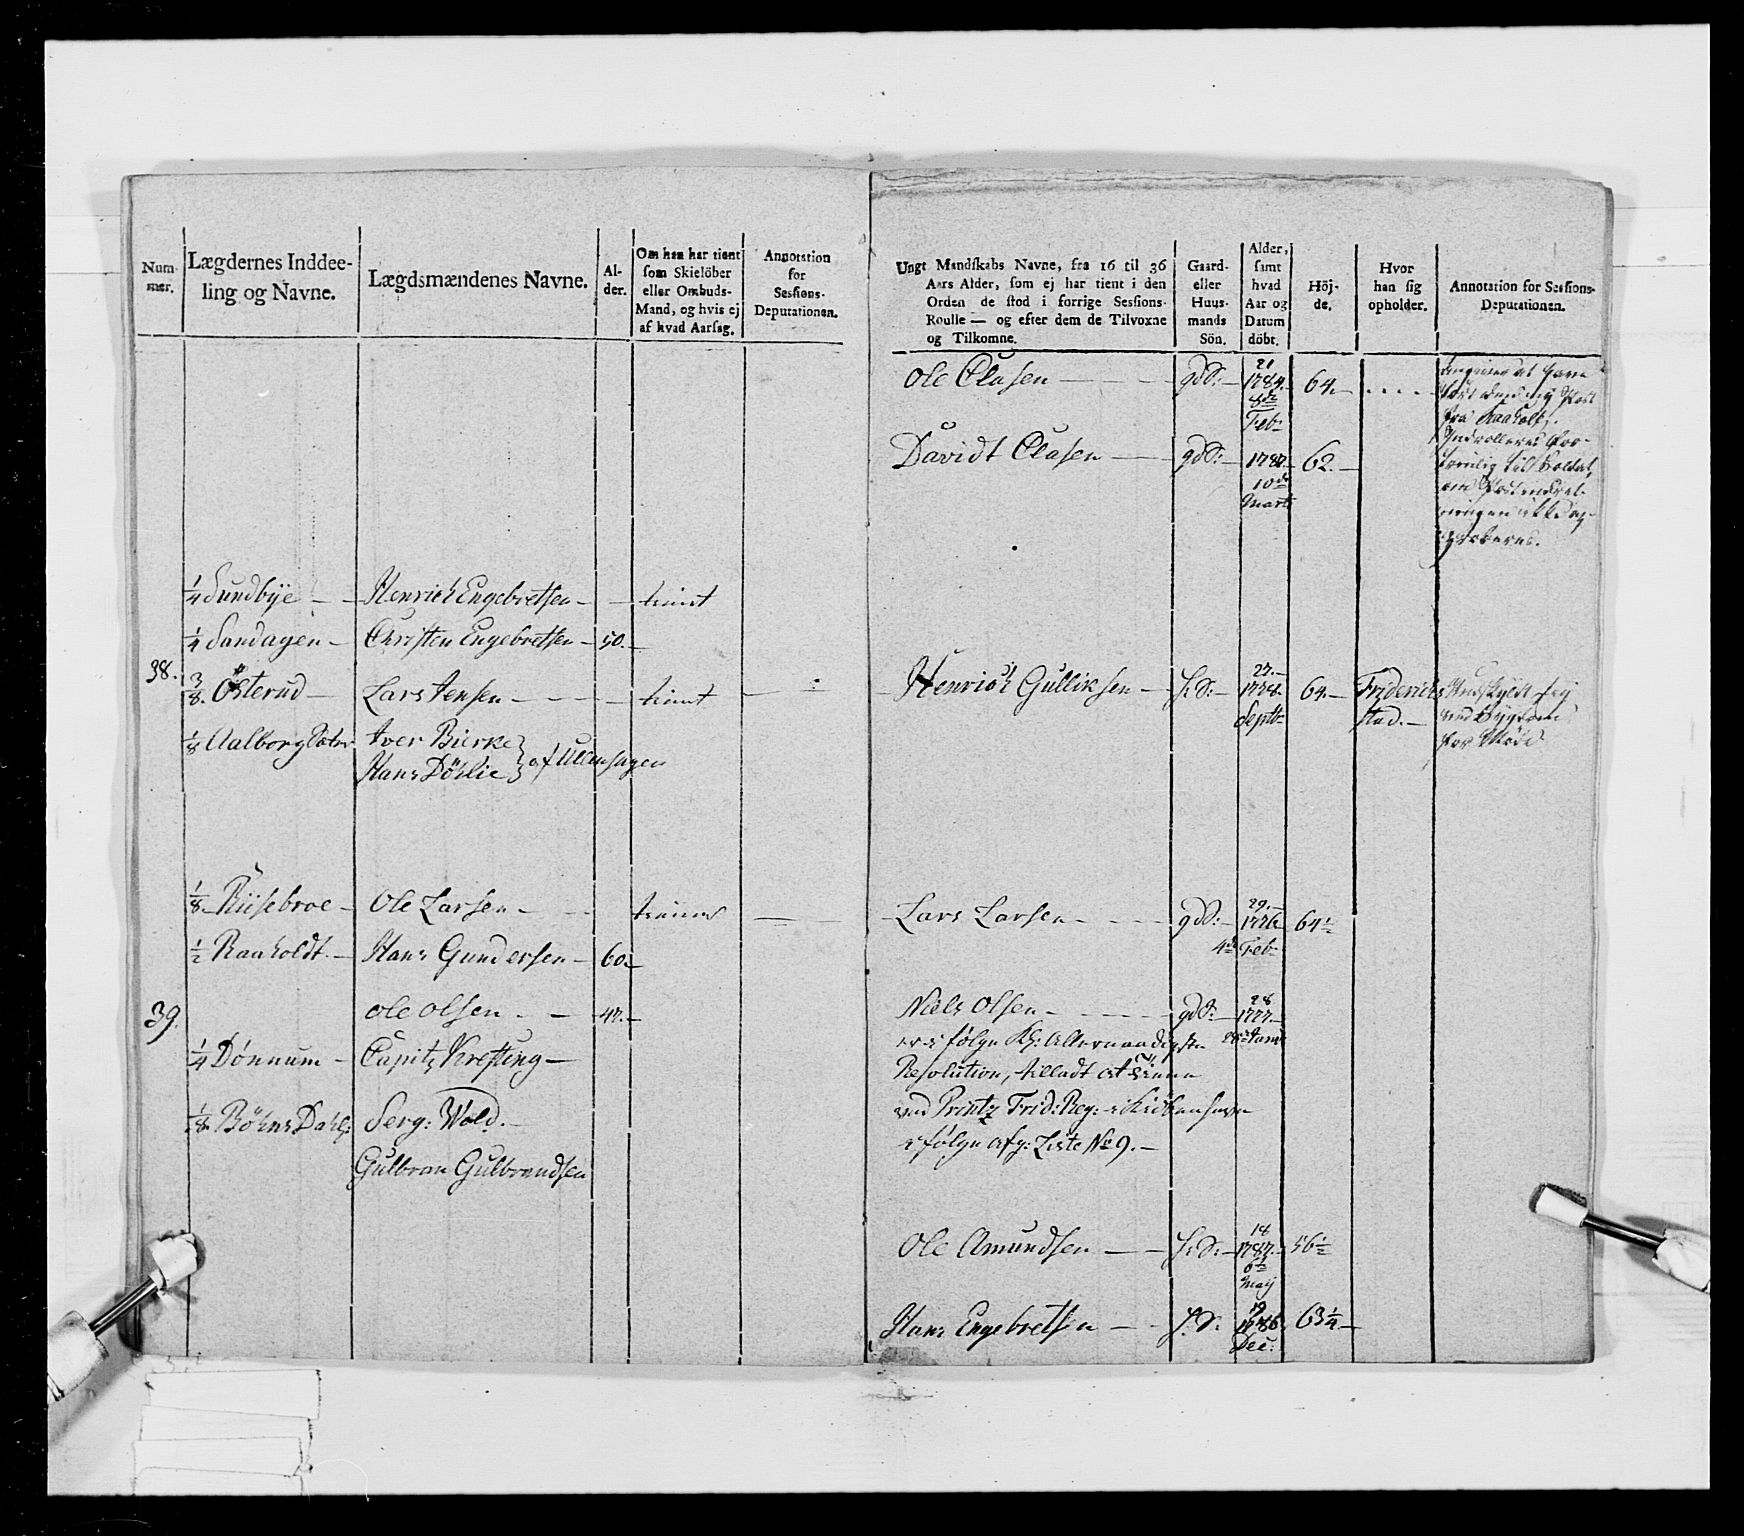 Num-
mer.
Lægdernes Inddee-
ling og Navne.
Lægdsmændenes Navne.
Al-
der.
Om han har tient
som Skielöber
eller Ombuds-
Mand, og hvis ej
af hvad Aarsag.
Annotation
for
Sessions-
Deputationen.
1/4 Sundbye - - Henrich Engebretsen - - tient
1/4 Sandagen - Christen Engebretsen - 50. -
38. 3/8. Österud - Lars Jensen - - - - tient
1/8 Aalborg Iver Bierke
Hans Döhlie } af Ullensagen
1/8 Riisebroe - Ole Larsen - - -
1/2 Raaholdt. - Hans Gundersen - 60. -
39. Ole Olsen - - 47. -
1/4 Dönnum - Capit: Kresting -
1/8 Böhns Dahl: Serg: Wold. -
Gulbran Gulbrandsen
Ungt Mandskabs Navne, fra 16 til 36
Aars Alder, som ej har tient i den
Orden de stod i forrige Sessions-
Roulle — og efter dem de Tilvoxne
og Tilkomne.
Gaard-
eller
Huus-
mands
Sön.
Alder,
samt
hvad
Aar og
Datum
döbt.
Höj-
de.
Hvor
han sig
opholder.
Annotation for Sessions-
Deputationen.
21
Ole Clasen - - - gdS: - 1784. - 64. - - - - -
8de
Feb:
fra Raaholt.
Davidt Clasen - - gdS: - 1787. - 62. -
til Soldat,
10de
Marti
27. -
Henrich Gulliksen - h: S: - 1778. - 64. - Friderichs
Septb: stad. -
for Möde
29. -
Lars Larsen - - - - gdS: - 1776 64 1/2
4de Feb:
28
Niels Olsen - - - - - gdS: - 1777. -
er i følge Kl: Allernaadigste
Resolution, tilladt at tiene
ved Printz Frid: Reg: i Kiöbenhavn
i følge afg: Liste No 9. -
18
Ole Amundsen - - h: S: - 1787. - 56 1/2
6te
May
19
Hans Engebretsen - - h: S: 1786 63 1/4. -
Dec: